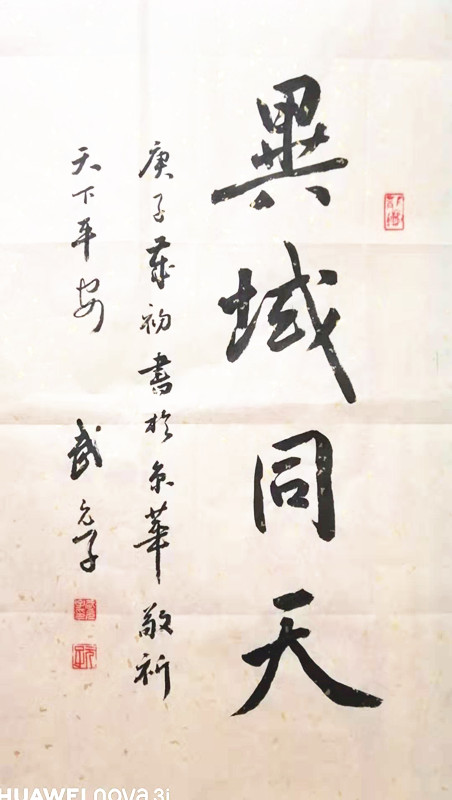 異域同天
庚子歲初書於京華敬祈
天下平安
武元子
HUAWEI nova 3i